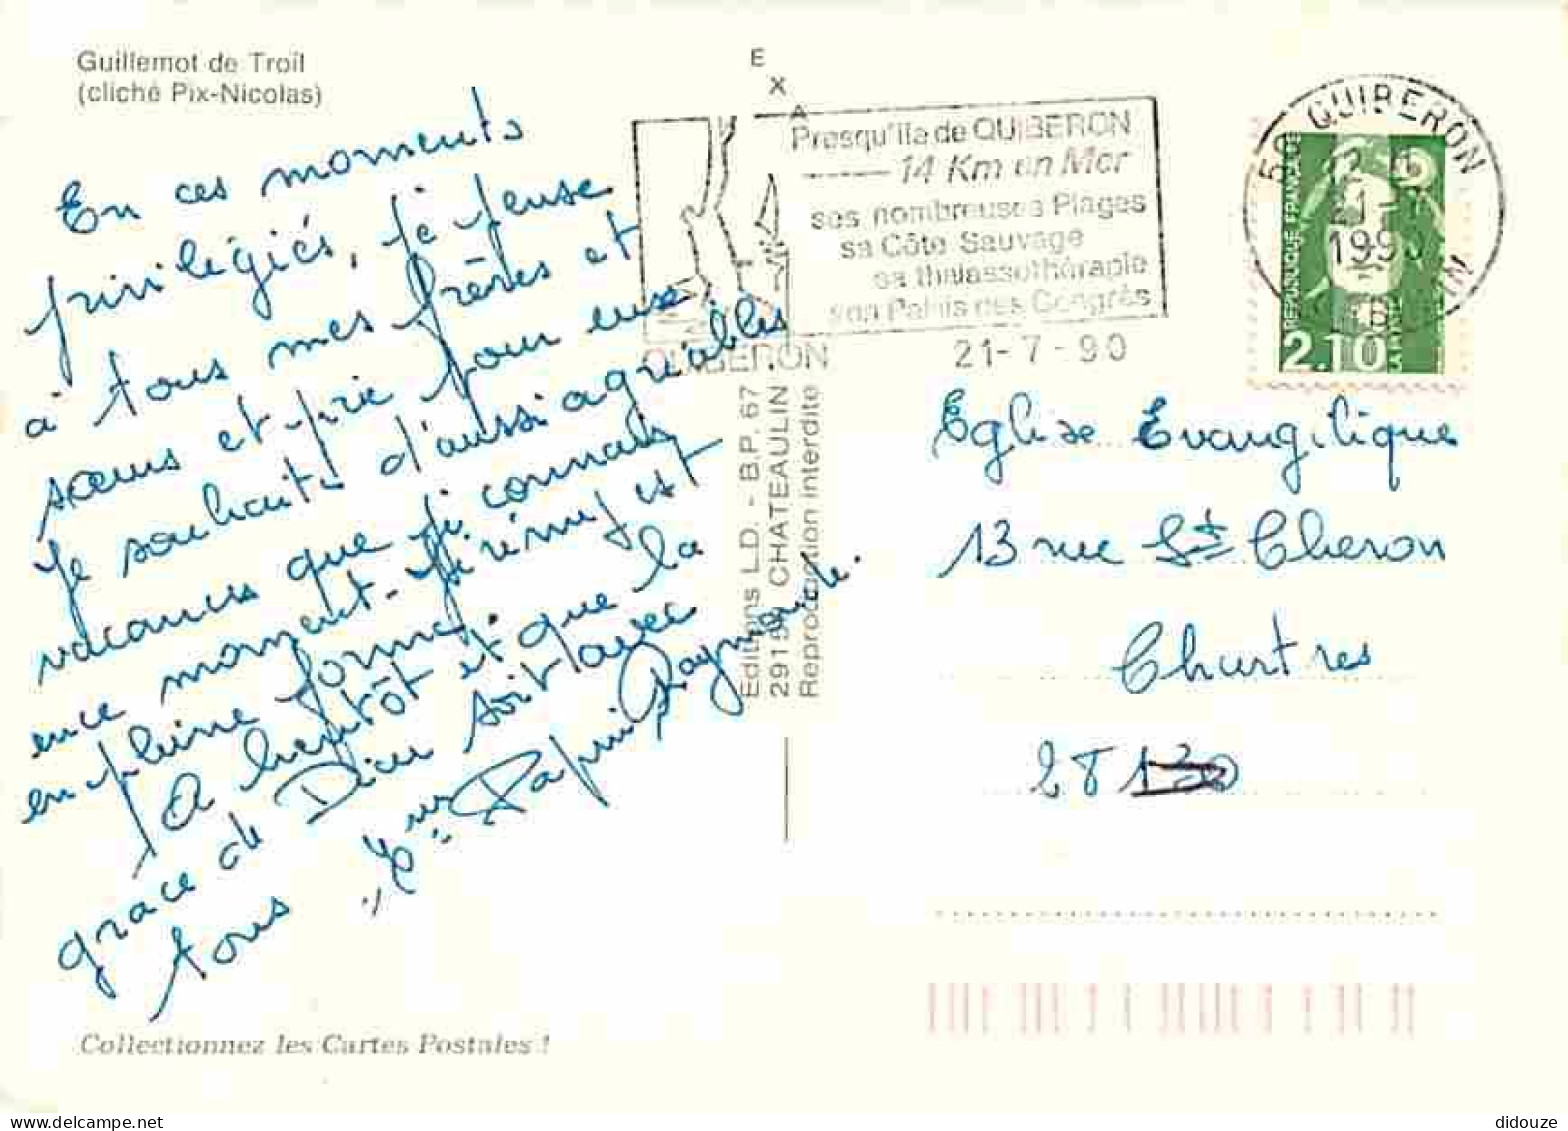 Guillemot de Troïl
(cliché Pix-Nicolas)
En ces moments
privilégiés, je pense
à tous mes frères et
sœurs et prie pour eux
Je souhaite d'aussi agréables
vacances que je connais
en ce moment. Jérémy est
en pleine forme.
A bientôt et que la
grâce de Dieu soit avec
tous
Papin Raymonde.
Collectionnez les Cartes Postales !
E
X
A
Presqu'île de QUIBERON
14 Km en Mer
ses nombreuses Plages
sa Côte Sauvage
sa thalassothérapie
son Palais des Congrès
QUIBERON
21-7-90
Editions L.D. - B.P. 67
29150 CHATEAULIN
Reproduction interdite
QUIBERON
21-7
1990
MORBIHAN
REPUBLIQUE FRANÇAISE
2.10
Eglise Evangélique
13 rue St Cheron
Chartres
28
didouze